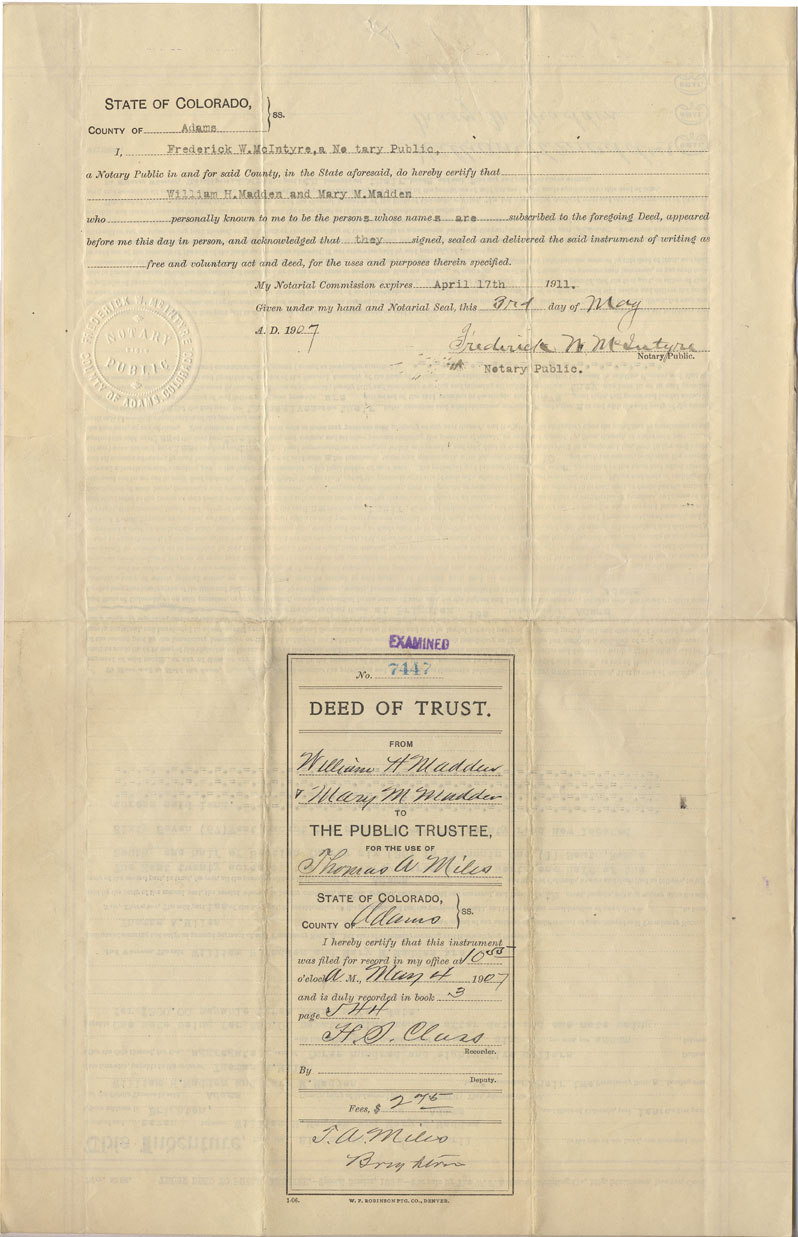 STATE OF COLORADO,
COUNTY OF Adams } ss.
I, Frederick W.McIntyre,a No tary Public,
a Notary Public in and for said County, in the State aforesaid, do hereby certify that
William H.Madden and Mary M.Madden
who personally known to me to be the persons whose names are subscribed to the foregoing Deed, appeared
before me this day in person, and acknowledged that they signed, sealed and delivered the said instrument of writing as
free and voluntary act and deed, for the uses and purposes therein specified.
My Notarial Commission expires April 17th 1911.
Given under my hand and Notarial Seal, this 3rd day of May
A. D. 1907
Frederick W McIntyre
Notary Public.
Notary Public.
NOTARY
PUBLIC
COUNTY OF ADAMS, COLORADO
EXAMINED
No. 7447
DEED OF TRUST.
FROM
William H Madden
& Mary M Madden
TO
THE PUBLIC TRUSTEE,
FOR THE USE OF
Thomas A Miles
STATE OF COLORADO,
COUNTY OF Adams } ss.
I hereby certify that this instrument
was filed for record in my office at 10
o'clock A. M., May 4 1907
and is duly recorded in book 3
page 544
Class
Recorder.
By
Deputy.
Fees, $ 2 75
T. A. Miles
Brighton
1-06. W. F. ROBINSON PTG. CO., DENVER.